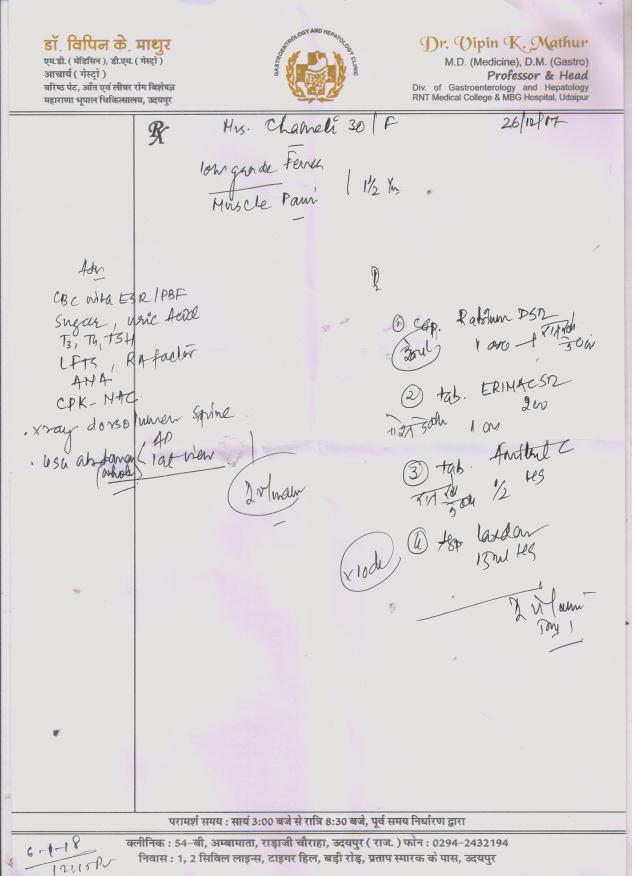 डॉ. विपिन के. माथुर
एम.डी. ( मेडिसिन ), डी.एम. ( गेस्ट्रो )
आचार्य ( गेस्ट्रो )
वरिष्ठ पेट, आँत एवं लीवर रोग विशेषज्ञ
महाराणा भूपाल चिकित्सालय, उदयपुर
GASTROENTEROLOGY AND HEPATOLOGY CLINIC
Dr. Vipin K. Mathur
M.D. (Medicine), D.M. (Gastro)
Professor & Head
Div. of Gastroenterology and Hepatology
RNT Medical College & MBG Hospital, Udaipur
Rx
Mrs. Chameli 30/F
26/12/17
low grade Fever
Muscle Pain
1½ Yrs
Adv
CBC with ESR/PBF
Sugar, Uric Acid
T3, T4, TSH
LFTs, RA factor
ANA
CPK-NAC
xray dorsolumber Spine
AP
lat view
USG abdomen
(whole)
① Cap. DSR
② tab.
200
③ tab. C
1/2 HS
④
15ml HS
x10d
परामर्श समय : सायं 3:00 बजे से रात्रि 8:30 बजे, पूर्व समय निर्धारण द्वारा
क्लीनिक : 54-बी, अम्बामाता, राड़ाजी चौराहा, उदयपुर ( राज. ) फोन : 0294-2432194
निवास : 1, 2 सिविल लाइन्स, टाइगर हिल, बड़ी रोड़, प्रताप स्मारक के पास, उदयपुर
6-1-18
12:15 PM